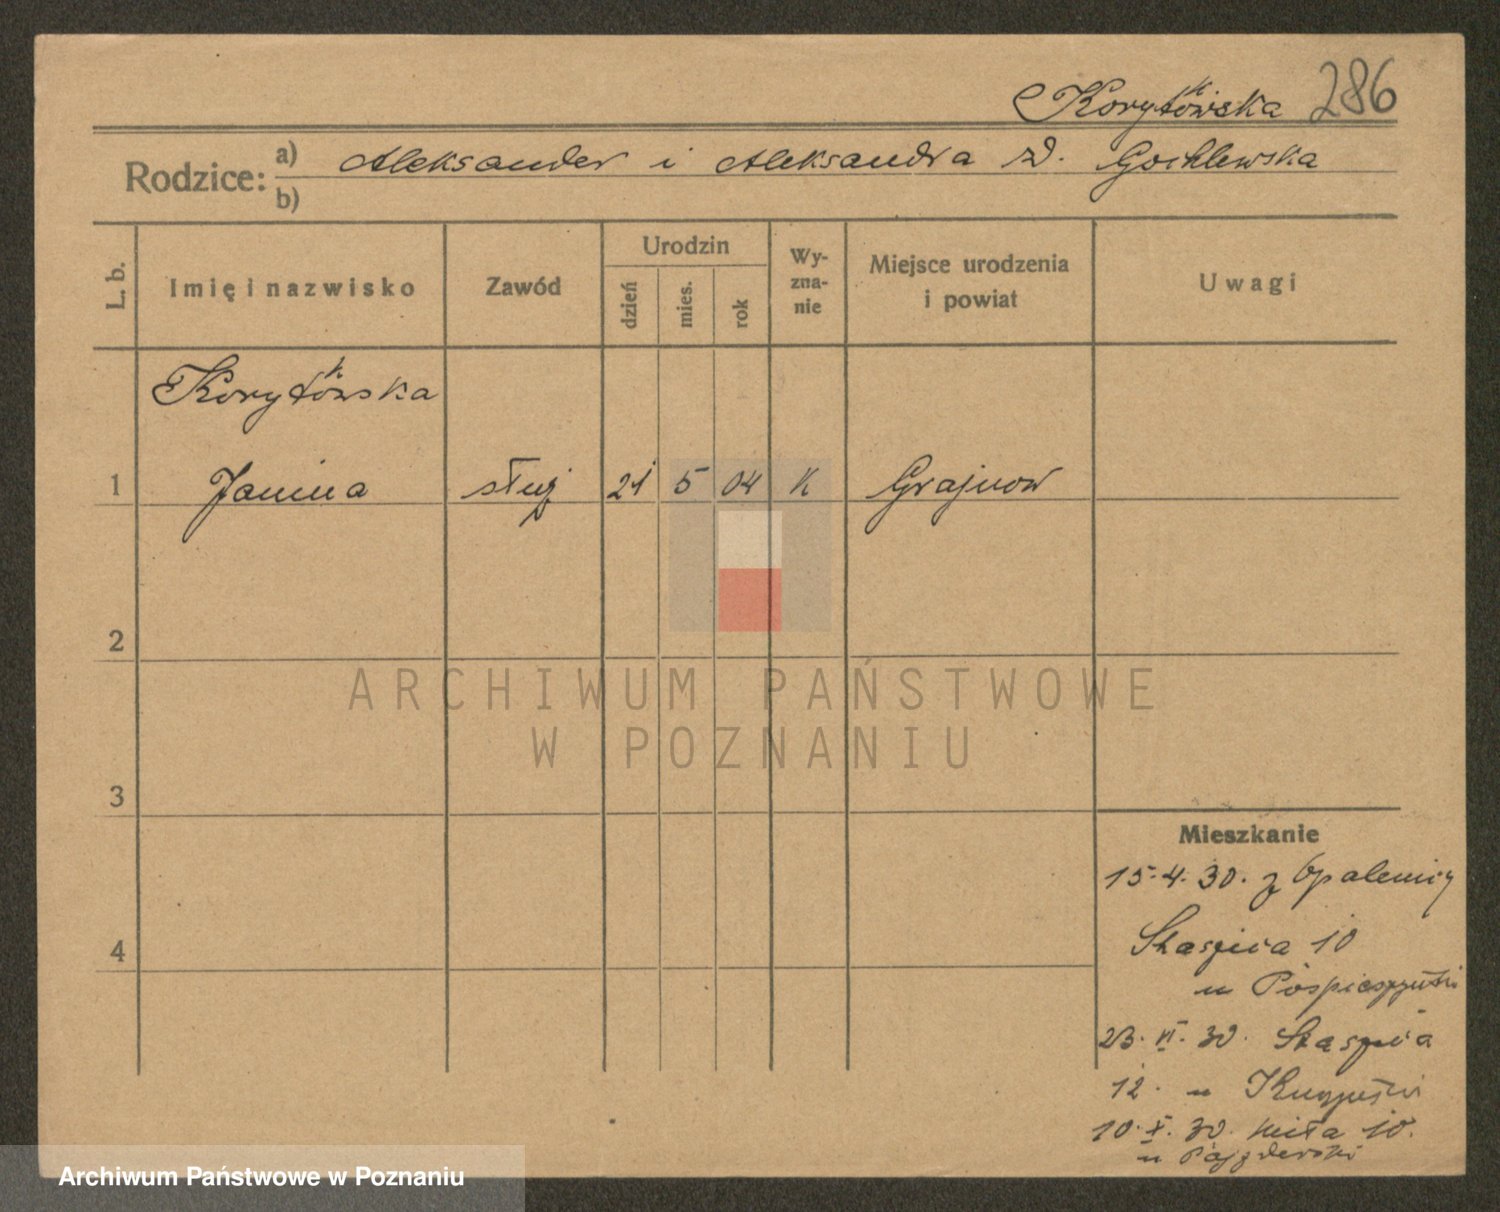 Korytkowska 286
Rodzice: a) Aleksander i Aleksandra zd. Gochlewska
b)
L. b.
Imię i nazwisko
Zawód
Urodzin
dzień
mies.
rok
Wy-
zna-
nie
Miejsce urodzenia
i powiat
Uwagi
Korytkowska
1 Janina służ 21 5 04 K Grajnow
2
3
4
Mieszkanie
15.4.30. z Opalenicy
Staszica 10
u
23.VI.30. Staszica
12. u
10.X.30. 10.
u Pajzderski
ARCHIWUM PAŃSTWOWE
W POZNANIU
Archiwum Państwowe w Poznaniu